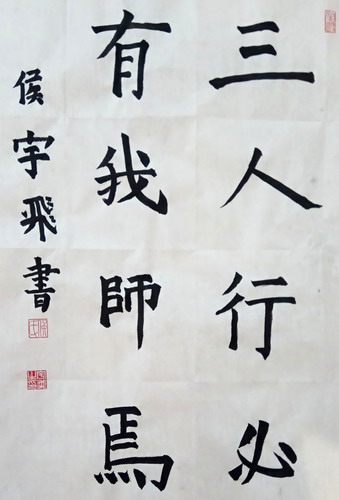 三人行必
有我師焉
侯宇飛書